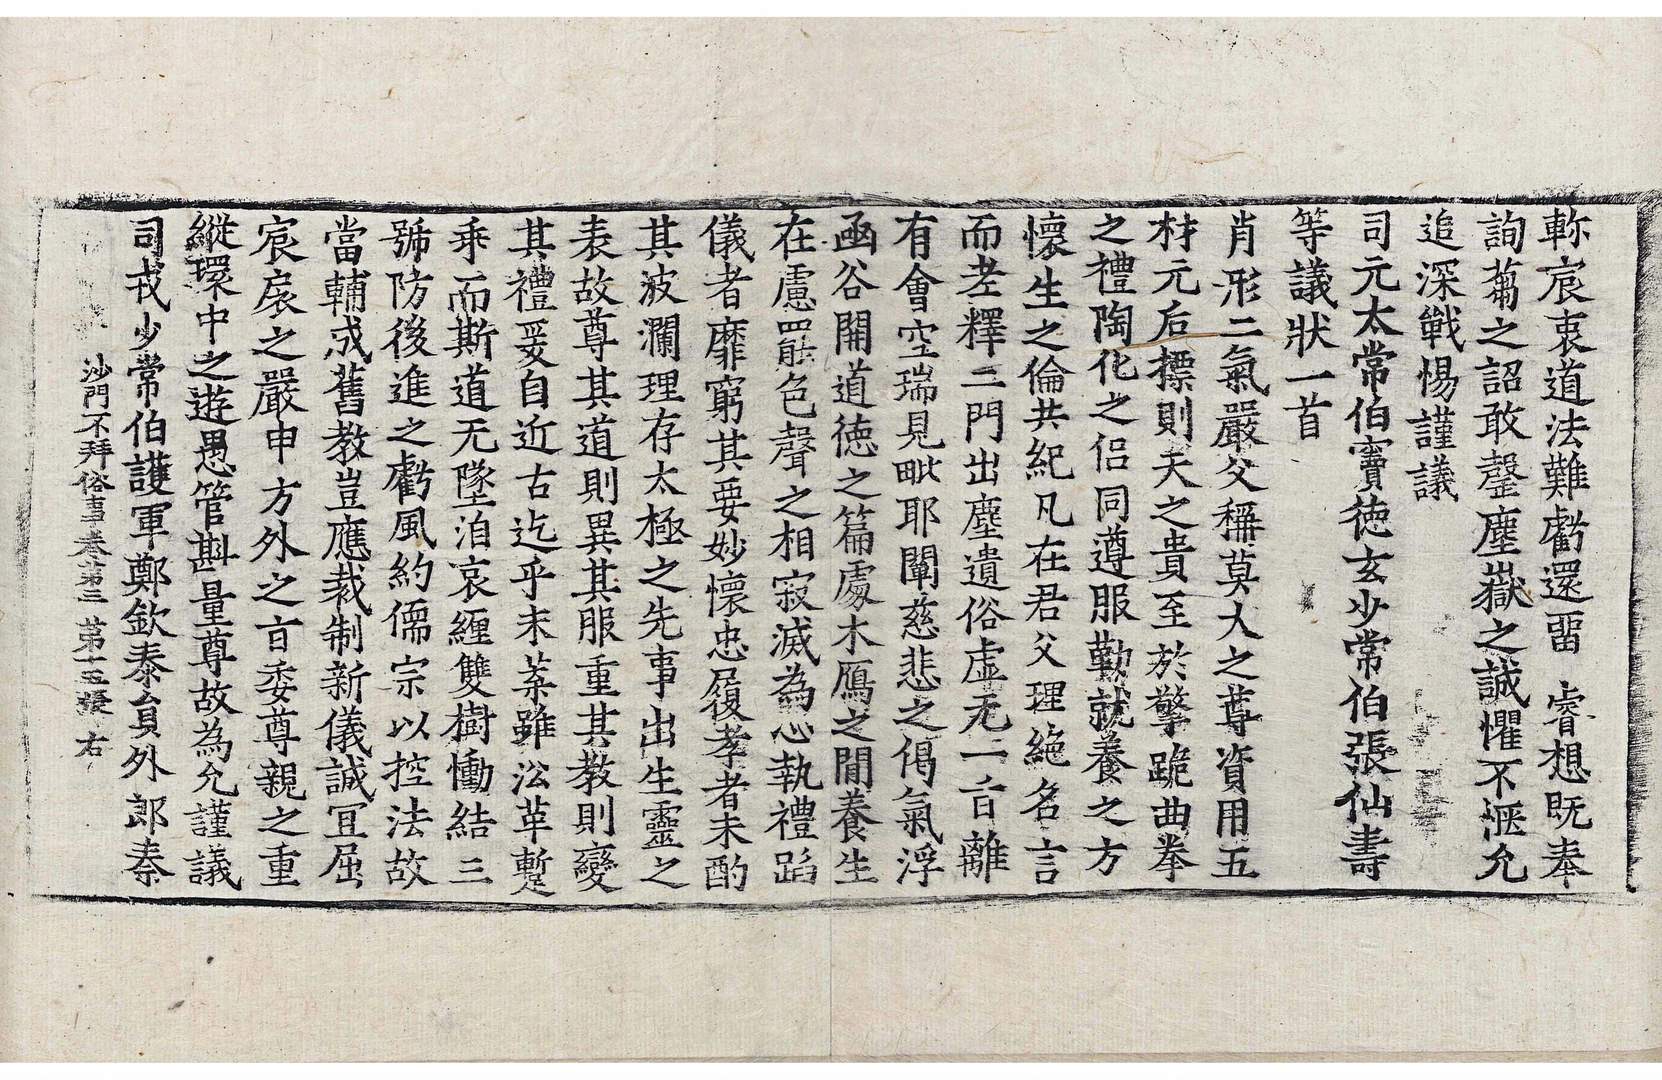 軫宸衷道法難虧還留　睿想既奉
詢蒭之詔敢罄塵嶽之誠懼不惬允
追深戰惕謹議
司元太常伯竇徳玄少常伯張仙壽
等議狀一首
肖形二氣嚴父稱莫大之尊資用五
材元后標則天之貴至於擎跪曲拳
之禮陶化之侶同遵服勤就養之方
懷生之倫共紀凡在君父理絶名言
而老釋二門出塵遺俗虛无一旨離
有會空瑞見毗耶闡慈悲之偈氣浮
函谷開道徳之篇處木鴈之閒養生
在慮罷色聲之相寂滅為心執禮蹈
儀者靡窮其要妙懷忠履孝者未酌
其波瀾理存太極之先事出生靈之
表故尊其道則異其服重其教則變
其禮爰自近古迄乎末葉雖沿革蹔
乖而斯道无墜洎哀纏雙樹慟結三
號防後進之虧風約儒宗以控法故
當輔成舊教豈應裁制新儀誠冝屈
宸扆之嚴申方外之旨委尊親之重
縱環中之遊愚管斟量尊故為允謹議
司戎少常伯護軍鄭欽泰員外郎秦
沙門不拜俗事卷第三　第十五張　右